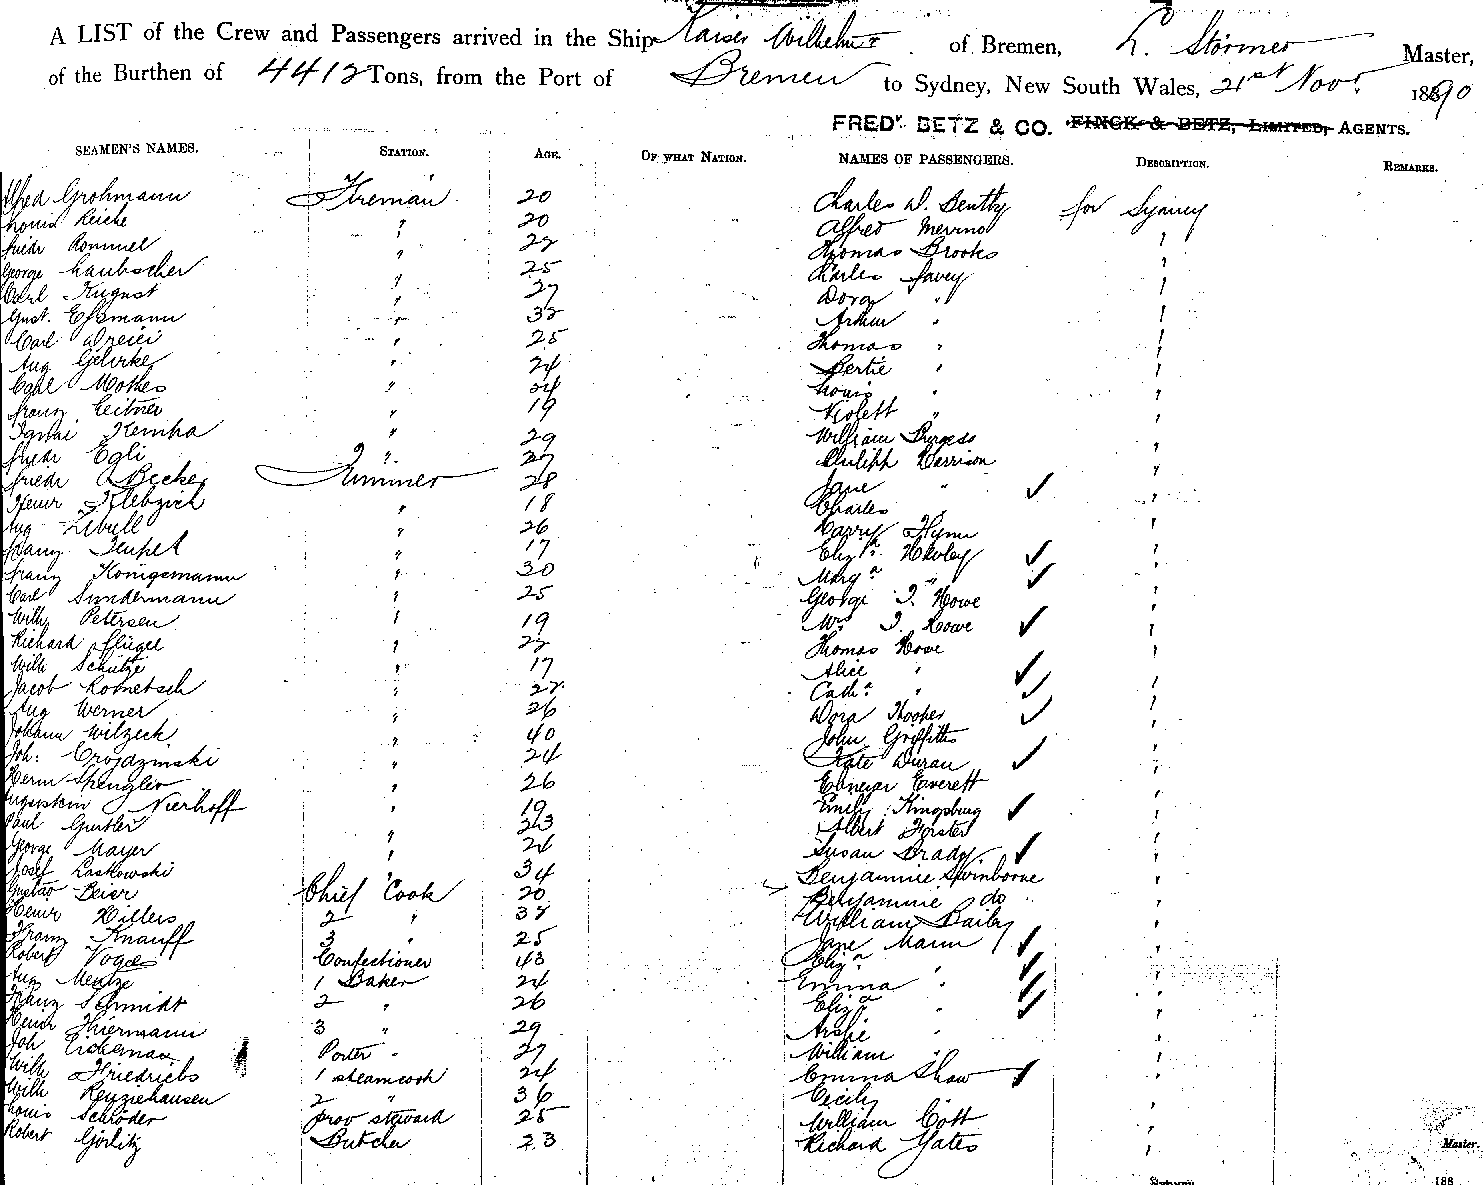 A LIST of the Crew and Passengers arrived in the Ship Kaiser Wilhelm II of Bremen, L. Störmer Master,
of the Burthen of 4412 Tons, from the Port of Bremen to Sydney, New South Wales, 21st Novr. 1890
FREDK. BETZ & CO. FINCK & BETZ, LIMITED, AGENTS.
SEAMEN'S NAMES. STATION. AGE. OF WHAT NATION. NAMES OF PASSENGERS. DESCRIPTION. REMARKS.
Alfred Grohmann Fireman 20 Charles W. Bentty for Sydney
Louis Reiche " 20 Alfred Merino "
Friedr Rommel " 22 Thomas Brooks "
George Laubscher " 25 Charles Savey "
Carl August " 27 Dora " "
Gust. Essmann " 32 Arthur " "
Carl " 25 Thomas " "
Aug Gehrke " 24 Bertie " "
Carl Mothes " 24 Louis " "
Franz Leitner " 19 Violett " "
Kemha " 29 William Burgess "
Friedr Egli " 27 Philipp Harrison "
Friedr Becker Trimmer 28 Jane " "
Heinr Klebzich " 18 Charles " "
Aug Libull " 26 Harry Flynn "
Franz Teupel " 17 Eliza. "
Franz Königsmann " 30 Marga. " "
Carl Sundermann " 25 George T. Howe "
Wilh Petersen " 19 Mrs T. Howe "
Richard Pflügel " 22 Thomas Howe "
Wilh Schütze " 17 Alice " "
Jacob Rometsch " 22 Cath. " "
Aug Werner " 26 Dora Hooper "
Johann Wilzeck " 40 John Griffiths "
Joh: Crojdzinski " 24 Kate Duran "
Herm Spengler " 26 Ebenezer Everett "
Nierhoff " 19 Emily Kingsburg "
Paul Gurtler " 23 Albert Forster "
George Mayer " 24 Susan Brady "
Josef Laskowski " 34 Benjamine Swinborne "
Gustav Beier Chief Cook 20 Benjamine do "
Heinr Hillers 2 " 38 William Baily "
Franz Knauff 3 " 25 Jane Mann "
Robert Voges Confectioner 43 Eliza. "
Aug Mentze 1 Baker 24 Emma " "
Franz Schmidt 2 " 26 Eliza " "
Heinr Thiermann 3 " 29 Archie " "
Joh Eickeman Porter " 27 William " "
Wilh Friedrichs 1 steamcook 24 Emma Shaw "
Wilh Renziehausen 2 " 36 Cecily "
Louis Schröder prov steward 25 William Cott "
Robert Görlitz Butcher 23 Richard Yates "
Master.
188